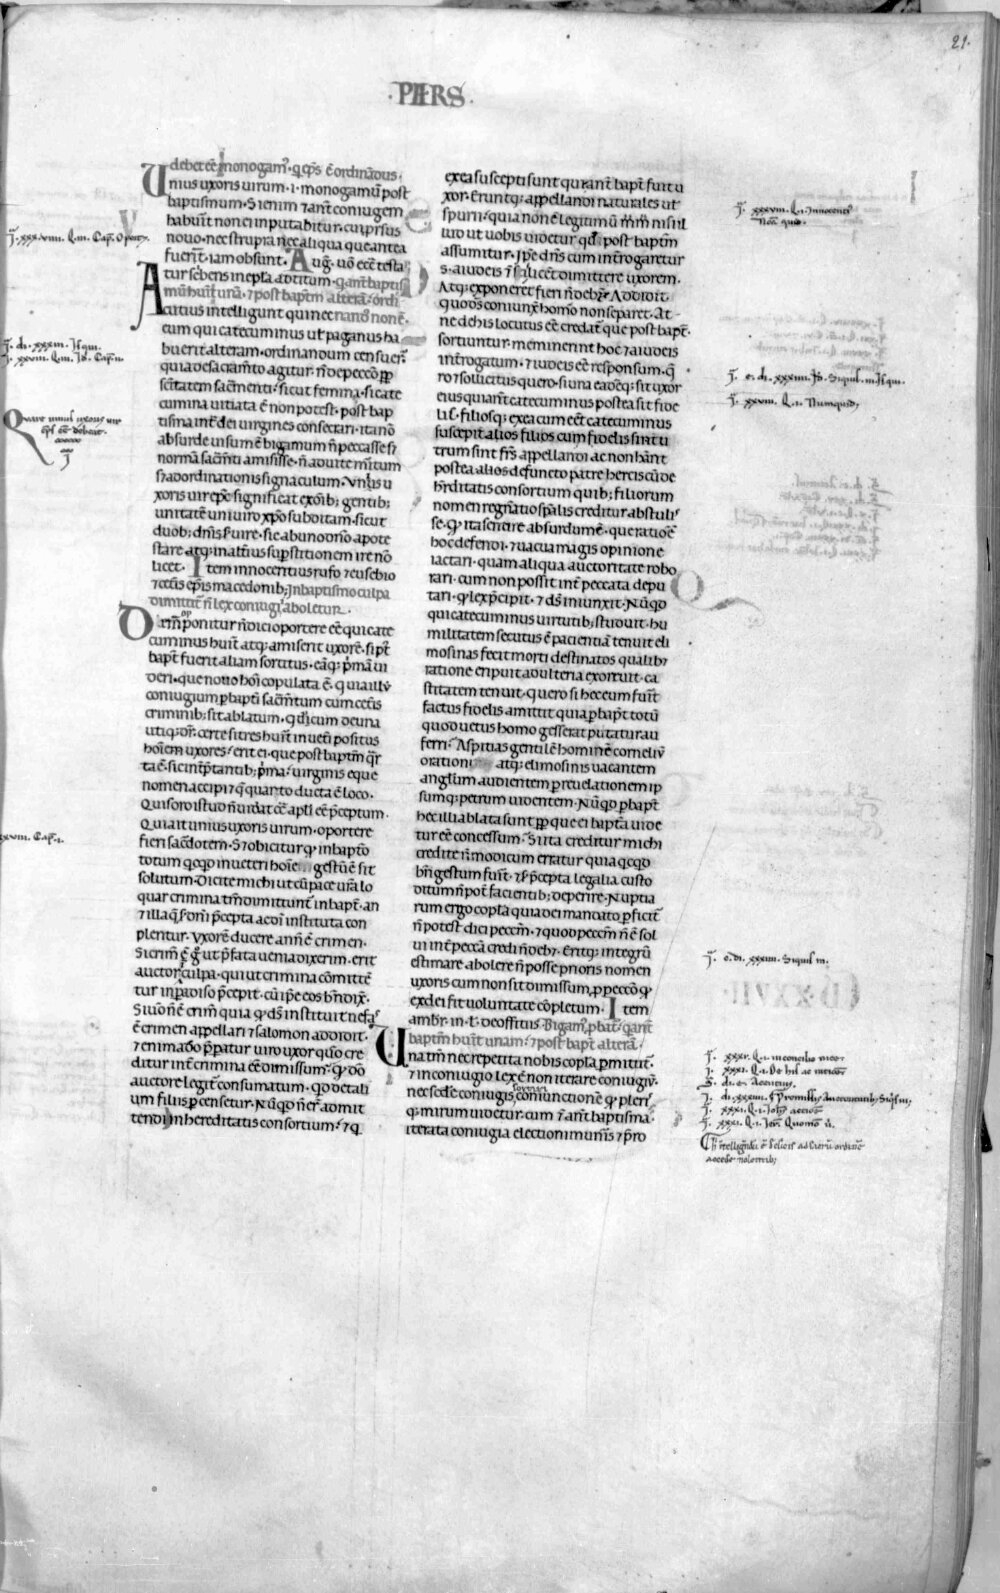 21.
· PARS ·
debet eē monogam᷒· q̄ ep̄s ē ordinādus·
Unius uxoris uirum· i· monogamū post
baptismum· Si enim ⁊ ant̄ coniugem
habuit non ei inputabitur· cui p̄rsus
nouo· nec strupra nec aliqua que antea
fuer̄t· iam obsunt· Aug̅· uō eccē testa
tur scˀbens in ep̄la ad titum· q̄ ant̄ baptis
mū huit unā· ⁊ post baptm̄ alterā· ordi
Acutius intelligunt qui nec
eum qui catecuminus ul̓ paganus ha
buerit alteram· ordinandum censuer̄·
quia de sacram̄to agitur· n̄ de peccō ꝓp
scītatem sacm̄enti· sicut femina· si cate
cumina uitiata ē non potest· post bap
tisma int̄ dei uirgines consecrari· ita nō
absurde uisum ē bigamum n̄ peccasse s;
normā sacm̄ti amisisse· n̄ ad uite m̄itum
s; ad ordinationis signaculum· Unius u
xoris uir ep̄c significat ex oīb; gentib;
unitatē uni uiro xp̄o subditam· sicut
duob; dn̄is s̄uire· sic ab uno dn̄o apote
stare atq; in alt̄ius suꝑstitionem ire nō
licet· Item innocentius rufo ⁊ eusebio
⁊ cet̄is ep̄is macedonib; In baptismo culpa
dimittit̄ n̄ lex coniugii aboletur·
Darm̄ ponitur n̄ dici oportere eē qui cate
cuminus huit̄ atq; amiserit uxorē· si p̄t
bapt̄ fuerit aliam sortitus· eāq; p̄mā ui
deri· que nouo hoī copulata ē· quia illd̓
coniugium ꝑ baptī sacm̄tum cum cet̄is
criminib; sit ablatum· q̄d cum de una
utiq; dr̄· certe si tres huit̄ in uet̄i positus
hoīem uxores· erit ei· que post baptm̄ q̄r
ta ē· sic int̄p̄tantib; p̄ma· uirginis eque
nomen accipi ⁊ q̄ quarto ducta ē loco·
Quis oro istud n̄ uideat eē apl̄i eē p̄ceptum·
Qui ait unius uxoris uirum· oportere
fieri sacdotem· S; obicitur q̄ in bapt̄o
totum q̄cq̄d in ueteri hoīe gestū ē sit
solutum· Dicite michi ut cū pace ur̄a lo
quar crimina tm̄ dimittunt̄ in bapt̄· an
⁊ illa q̄ s̄m p̄cepta ac dn̄i instituta con
plentur· Uxorē ducere an n̄ ē crimen·
Si crim̄ ē g̊ ut p̄fata uenia dixerim· erit
auctor culpa· qui ut crimina cōmitte
tur in padiso p̄cepit· cū ip̄e eos b̄ndix̄·
Si uō n̄ ē crim̄ quia q̄ ds̄ instituit nefas
ē crimen appellari ⁊ salomon addidit·
⁊ enim a dō p̄paratur uiro uxor quō cre
ditur int̄ crimina eē dimissum· q̄ a dō
auctore legit̄ consumatum· q̄d de tali
um filiis ꝑcensetur· nūq̄d n̄ er̄ admit
tendi in hereditatis consortium· ⁊ q̄
ex ea suscepti sunt quia ant̄ bapt̄ fuit u
xor· erunt q; appellandi naturales ul̓
spurii· quia non ē legitimū m̄rm̄ nisi il
lud ut uobis uidetur qd̓ post baptm̄
assumitur· Ip̄e dn̄s cum int̄rogaretur
a iudeis si liceret dimittere uxorem·
Atq; exponeret fieri n̄ deb̓e addidit·
quod ds̄ coniunx̄ homo non separet· At
ne de his locutus eē credat̄ que post bapt̄·
sortiuntur· meminerint hoc ⁊ a iudeis
int̄rogatum· ⁊ iudeis eē responsum· q̄
ro ⁊ sollicitus quero· si una eadēq; sit uxor
eius qui ant̄ catecuminus postea sit fide
lis· filiosq; ex ea cum eēt catecuminus
susceperit alios filios cum fidelis sint u
trum sint fr̄s appellandi ac non h̄ant
postea alios defuncto patre herciscūde
h̄rditatis consortium quib; filiorum
nomen regn̄atio sp̄alis creditur abstulis
se· q̄ ita sentire absurdum ē· que ratiō ē
hoc defendi· ⁊ uacua magis opinione
iactari· quam aliqua auctoritate robo
rari· cum non possit int̄ peccata depu
tari· q̄ lex p̄cipit· ⁊ ds̄ iniunxit· Nūq̄d
qui catecuminus uirtutib; studuit· hu
militatem secutus ē pacientiā tenuit eli
mosinas fecit morti destinatos qualib;
ratione eripuit adulteria exorruit· ca
stitatem tenuit· quero si hec cum fuit̄
factus fidelis amittit quia ꝑ bapt̄ totū
quod uetus homo gesserat putatur au
ferri· Aspitias gentilē hominē corneliū
orationi atq; elimosinis uacantem
anglum audientem ꝑ reuelationem ip
sumq; petrum uidentem· Nūq̄d ꝑ bapt̄
hec illi ablata sunt ꝓp que ei bapt̄a uide
tur eē concessum· Si ita creditur michi
credite n̄ modicum erratur quia q̄cq̄d
bn̄ gestum fuit̄· ⁊ s̄ p̄cepta legalia custo
ditum n̄ pot̄ facientib; deperire· Nuptia
rum ergo copl̄a quia dei mandato ꝑficit̄
n̄ potest dici peccm̄· ⁊ quod peccm̄ n̄ ē sol
ui int̄ peccā credi n̄ deb;· Eritq; integrū
estimare abolere n̄ posse prioris nomen
uxoris cum non sit dimissum, ꝓ peccō q̄
ex dei fit uoluntate cōpletum· Item
ambr̄· in· l· de offitiis· Bigam᷒ ꝓbat̄· q̄ ant̄
baptm̄ huit̄ unam· ⁊ post bapt̄ alterā·
Una tm̄ nec repetita nobis copl̄a ꝑmittit̄·
⁊ in coniugio lex ē non iterare coniugiū·
nec sedē coniugis coniunctionē q̄ pleri
q; mirum uidetur· cum ⁊ ant̄ baptisma·
iterata coniugia electioni mun̄is ⁊ p̄ro
Quare unius uxoris uir
ep̄s eē debeat·
J· xxxviii· Q· i· Innocentius
J· e· di· xxxiiii· Si quis·
J· xxviii· Q· i· Numquid,
J· e· di· xxxiii· Si quis ul·
J· xxxi· Q· i· De his
Intelligendū ē
accede nolentib;